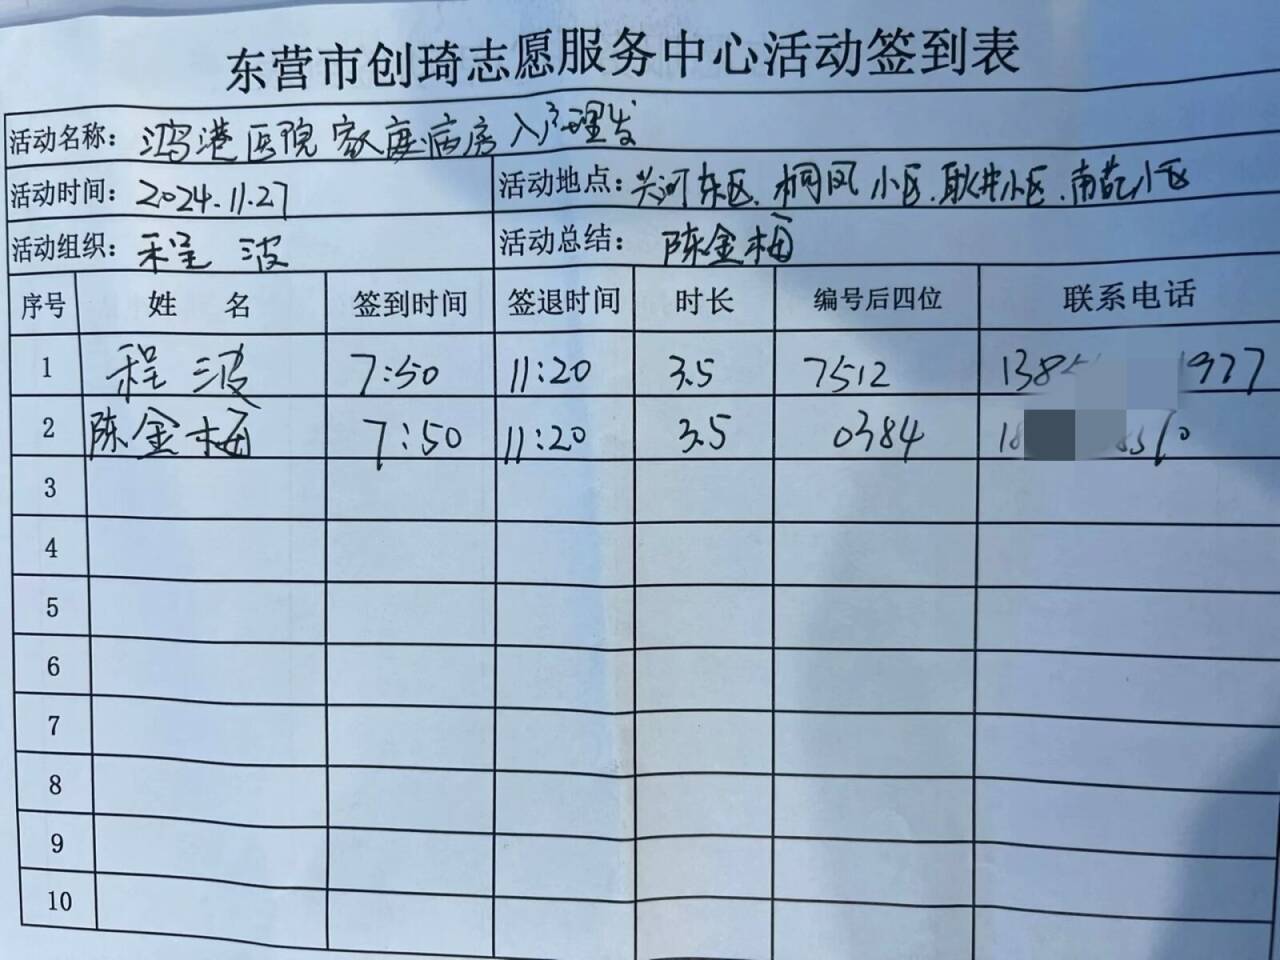 东营市创琦志愿服务中心活动签到表
活动名称：鸿港医院家庭病房入户理发
活动时间：2024.11.27 活动地点：兴河东区、桐凤小区、耿井小区、南苑小区
活动组织：程波 活动总结：陈金梅
序号 姓名 签到时间 签退时间 时长 编号后四位 联系电话
1 程波 7:50 11:20 3.5 7512 1385 1927
2 陈金梅 7:50 11:20 3.5 0384 18
3
4
5
6
7
8
9
10